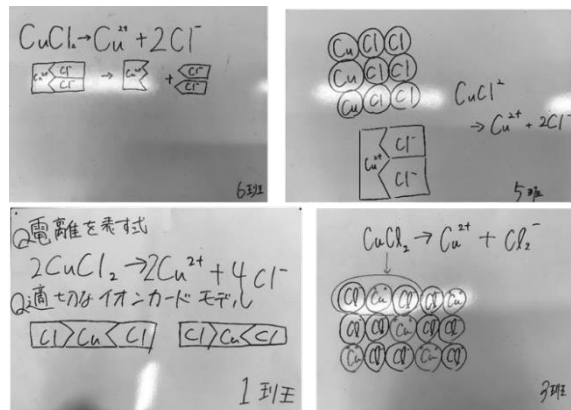 CuCl₂→Cu²⁺+2Cl⁻
Cu²⁺ Cl⁻ → Cu²⁺ + Cl⁻
Cl⁻ Cl⁻
6班
Cu Cl Cl
Cu Cl Cl
Cu Cl Cl
CuCl²
→Cu²⁺+2Cl⁻
Cu²⁺ Cl⁻
Cl⁻
5班
Q電離を表す式
2CuCl₂→2Cu²⁺+4Cl⁻
Q適切なイオンカードモデル
Cl Cu Cl Cl Cu Cl
1班
CuCl₂→Cu²⁺+Cl₂⁻
Cl Cu Cl Cl Cu
Cl Cl Cu Cl Cl
Cu Cl Cl Cu Cl
3班